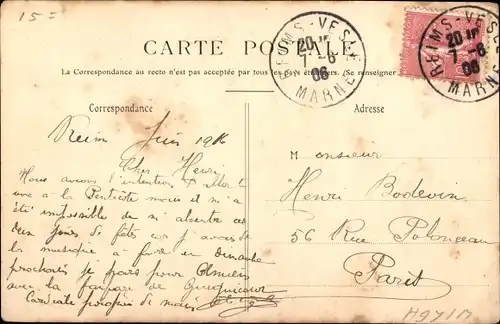 15=
CARTE POSTALE
La Correspondance au recto n'est pas acceptée par tous les pays étrangers. (Se renseigner
REIMS-VESLE
20
7-6
06
MARNE
REIMS-VESLE
20
7-6
06
MARNE
Correspondance
Adresse
Reims Juin 1906
Cher Henri
Nous avions l'intention d'aller te
voir a la Pentecôte mais il m'a
été impossible de m'absenter ces
deux jours de fêtes car j'avais de
la musique a faire
prochain je pars pour
avec la fanfare de
Cordiale poignée de main
Monsieur
Henri Bodevin
56 Rue Polonceau
Paris